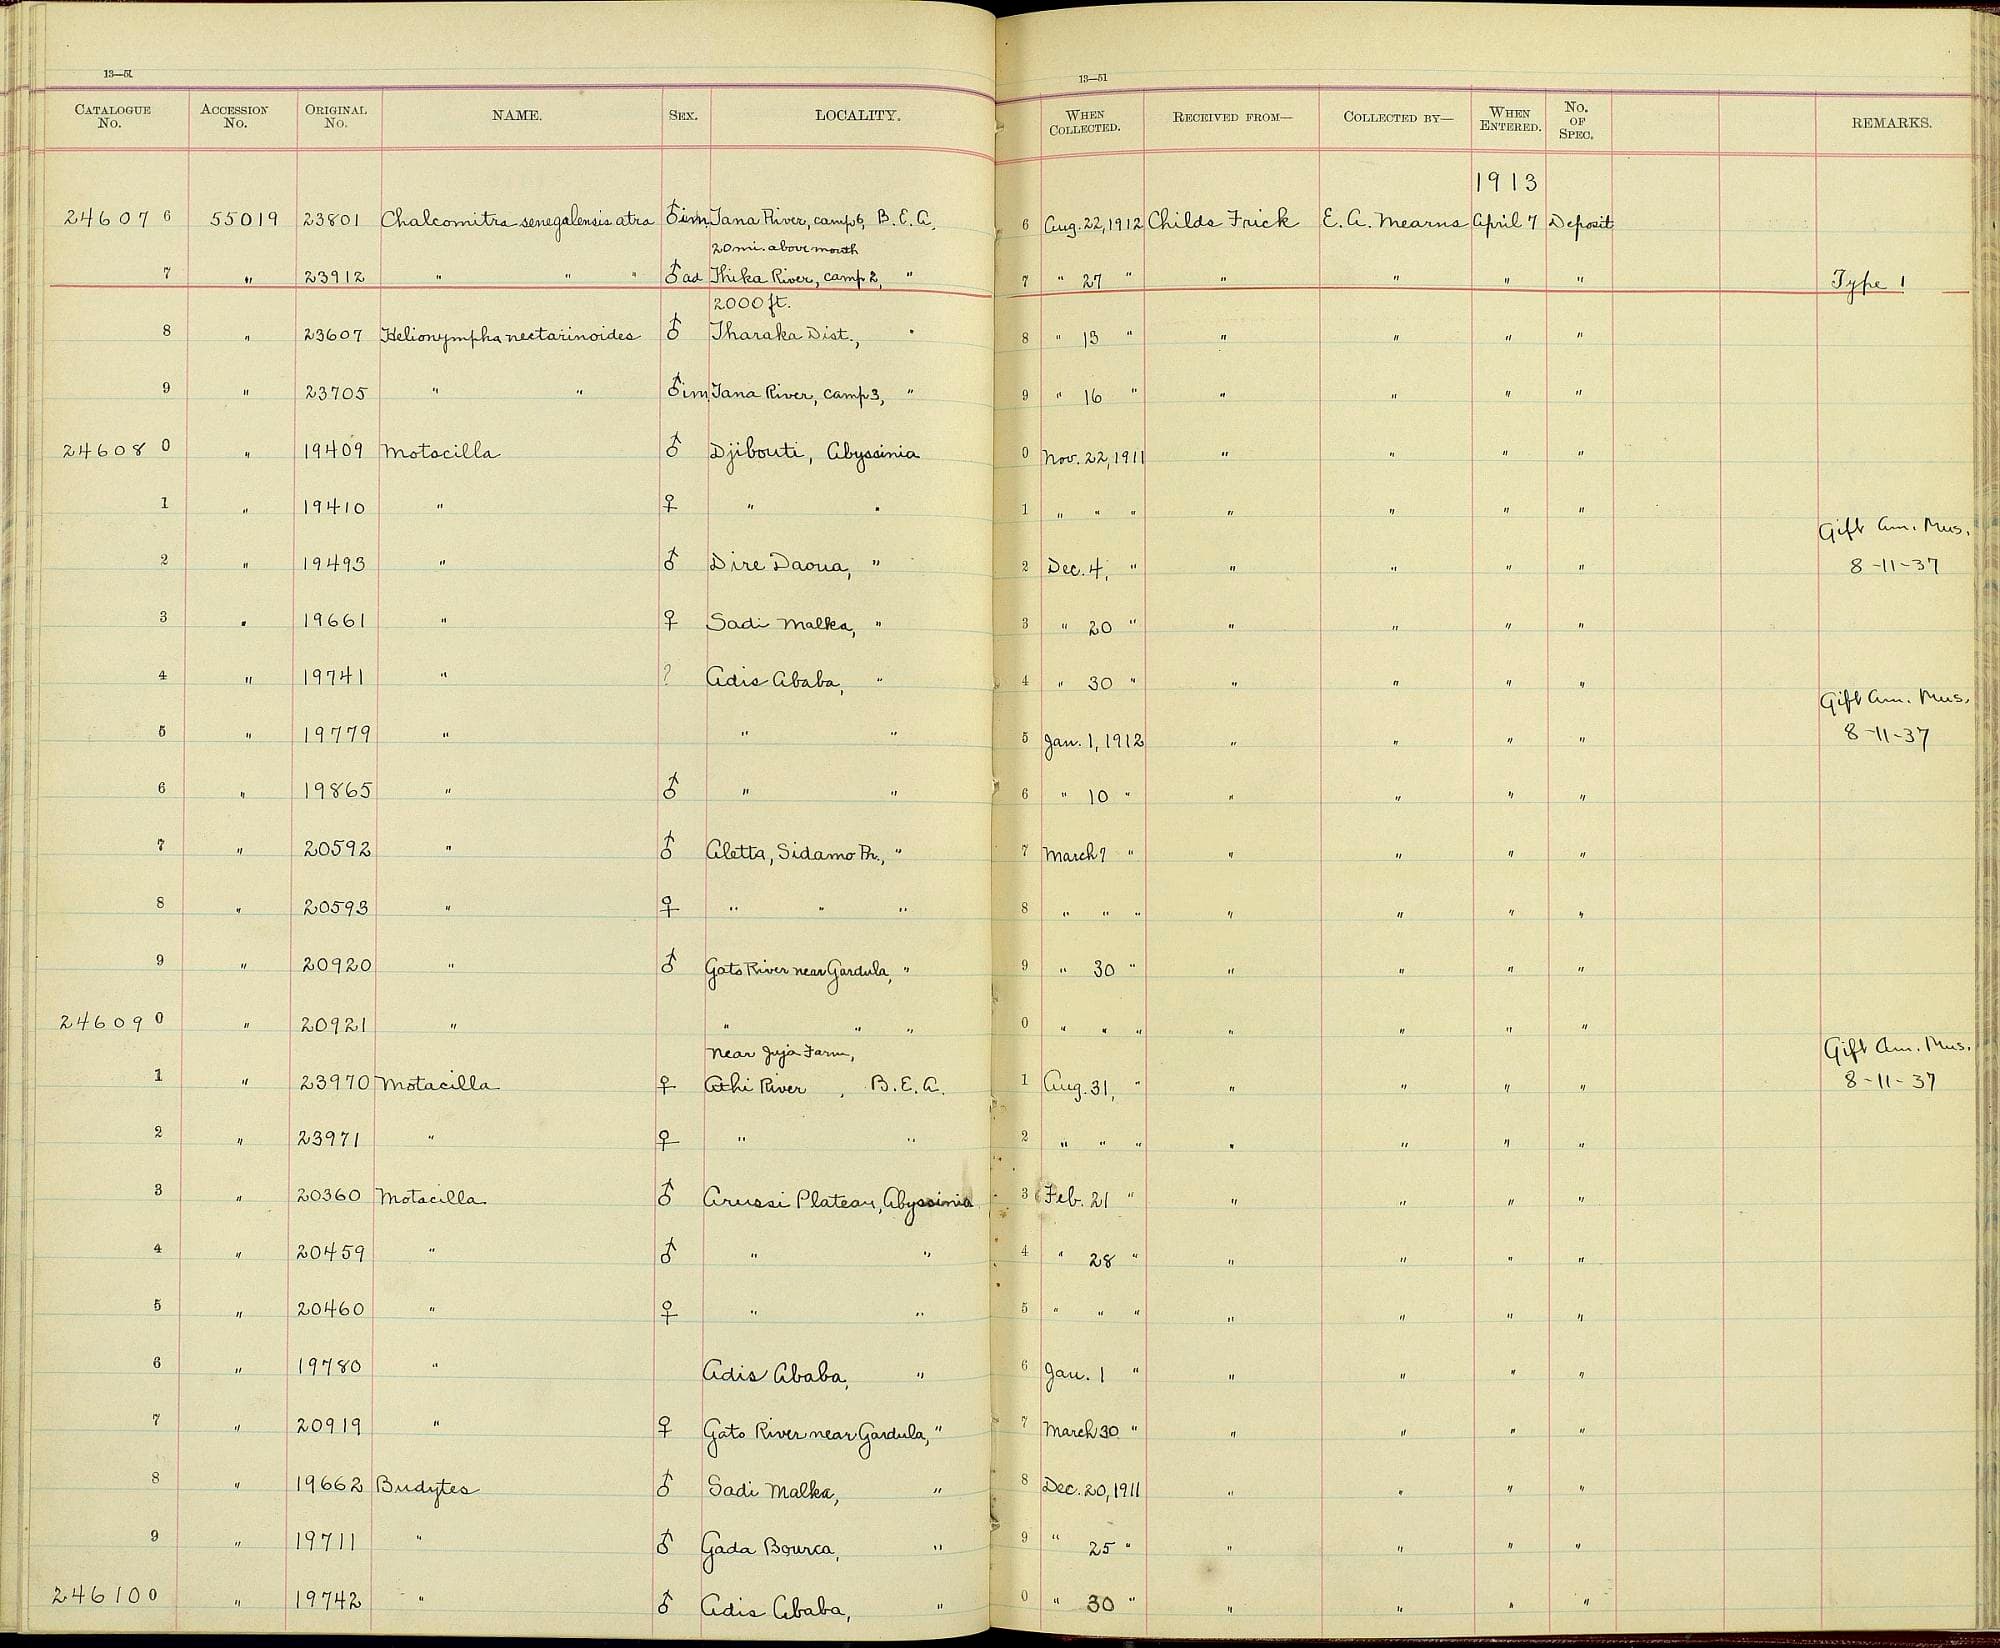 13—51 13—51
CATALOGUE No. ACCESSION No. ORIGINAL No. NAME. SEX. LOCALITY. WHEN COLLECTED. RECEIVED FROM— COLLECTED BY— WHEN ENTERED. No. OF SPEC. REMARKS.
1913
24607 6 55019 23801 Chalcomitra senegalensis atra ♂im. Tana River, camp 6, B. E. A. 6 Aug. 22, 1912 Childs Frick E. A. Mearns April 7 Deposit
20 mi. above mouth
7 " 23912 " " " ♂ad Thika River, camp 2, " 7 " 27 " " " " " Type 1
2000 ft.
8 " 23607 Helionympha nectarinoides ♂ Tharaka Dist., " 8 " 13 " " " " "
9 " 23705 " " ♂im. Tana River, camp 3, " 9 " 16 " " " " "
24608 0 " 19409 Motacilla ♂ Djibouti, Abyssinia 0 Nov. 22, 1911 " " " "
1 " 19410 " ♀ " " 1 " " " " " " "
Gift Am. Mus.
2 " 19493 " ♂ Dire Daoua, " 2 Dec. 4, " " " " " 8-11-37
3 " 19661 " ♀ Sadi Malka, " 3 " 20 " " " " "
4 " 19741 " ? Adis Ababa, " 4 " 30 " " " " "
Gift Am. Mus.
5 " 19779 " " " 5 Jan. 1, 1912 " " " " 8-11-37
6 " 19865 " ♂ " " 6 " 10 " " " " "
7 " 20592 " ♂ Aletta, Sidamo Pr., " 7 March 7 " " " " "
8 " 20593 " ♀ " " " 8 " " " " " " "
9 " 20920 " ♂ Gato River near Gardula, " 9 " 30 " " " " "
24609 0 " 20921 " " " " 0 " " " " " " "
near Juja Farm, Gift Am. Mus.
1 " 23970 Motacilla ♀ Athi River , B. E. A. 1 Aug. 31, " " " " " 8-11-37
2 " 23971 " ♀ " " 2 " " " " " " "
3 " 20360 Motacilla ♂ Arussi Plateau, Abyssinia 3 Feb. 21 " " " " "
4 " 20459 " ♂ " " 4 " 28 " " " " "
5 " 20460 " ♀ " " 5 " " " " " " "
6 " 19780 " Adis Ababa, " 6 Jan. 1 " " " " "
7 " 20919 " ♀ Gato River near Gardula, " 7 March 30 " " " " "
8 " 19662 Budytes ♂ Sadi Malka, " 8 Dec. 20, 1911 " " " "
9 " 19711 " ♂ Gada Bourca, " 9 " 25 " " " " "
24610 0 " 19742 " ♂ Adis Ababa, " 0 " 30 " " " " "